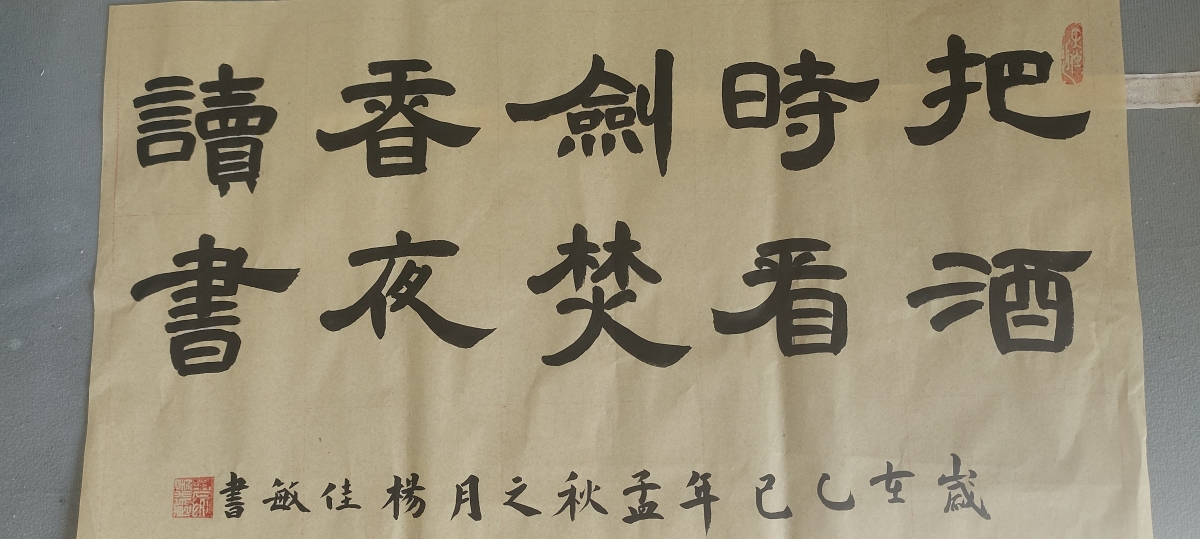 把酒
時看
劍焚
香夜
讀書
歲在乙巳年孟秋之月楊佳敏書